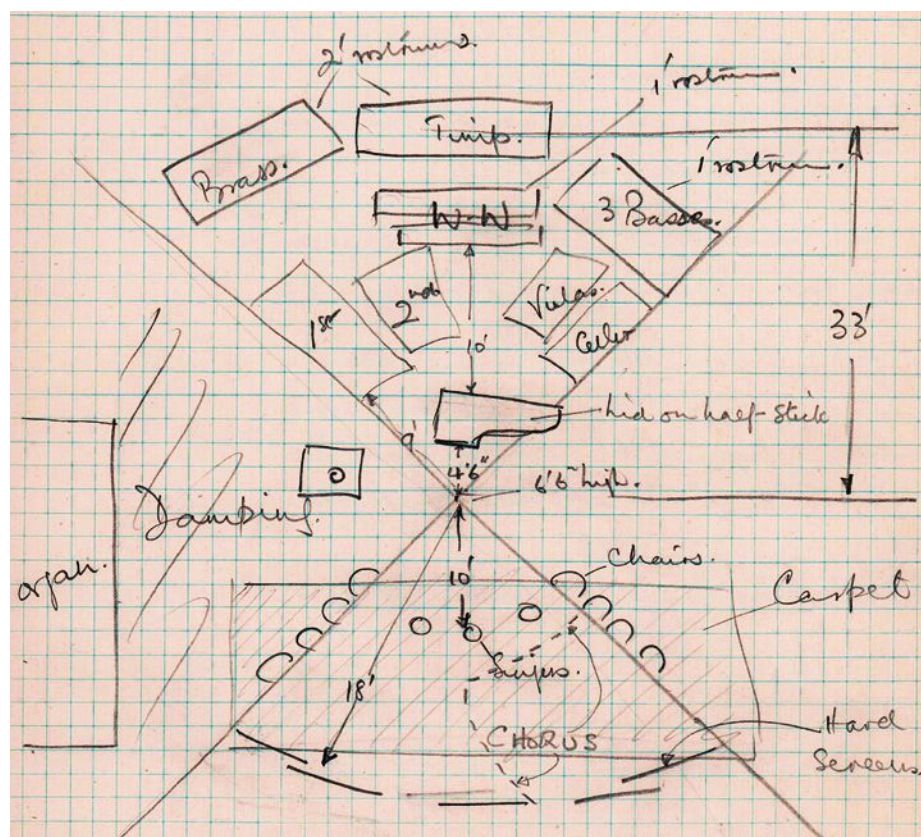 2' rostrums.
1' rostrum.
Timp.
Brass.
1' rostrum.
W-W
3 Basses.
1st
2nds
Violas.
Celli
10'
33'
Lid on half-stick
9'
4'6"
6'6" high.
Damping.
organ.
Chairs.
10'
Carpet
Singers.
18'
CHORUS
Hard
Screens.